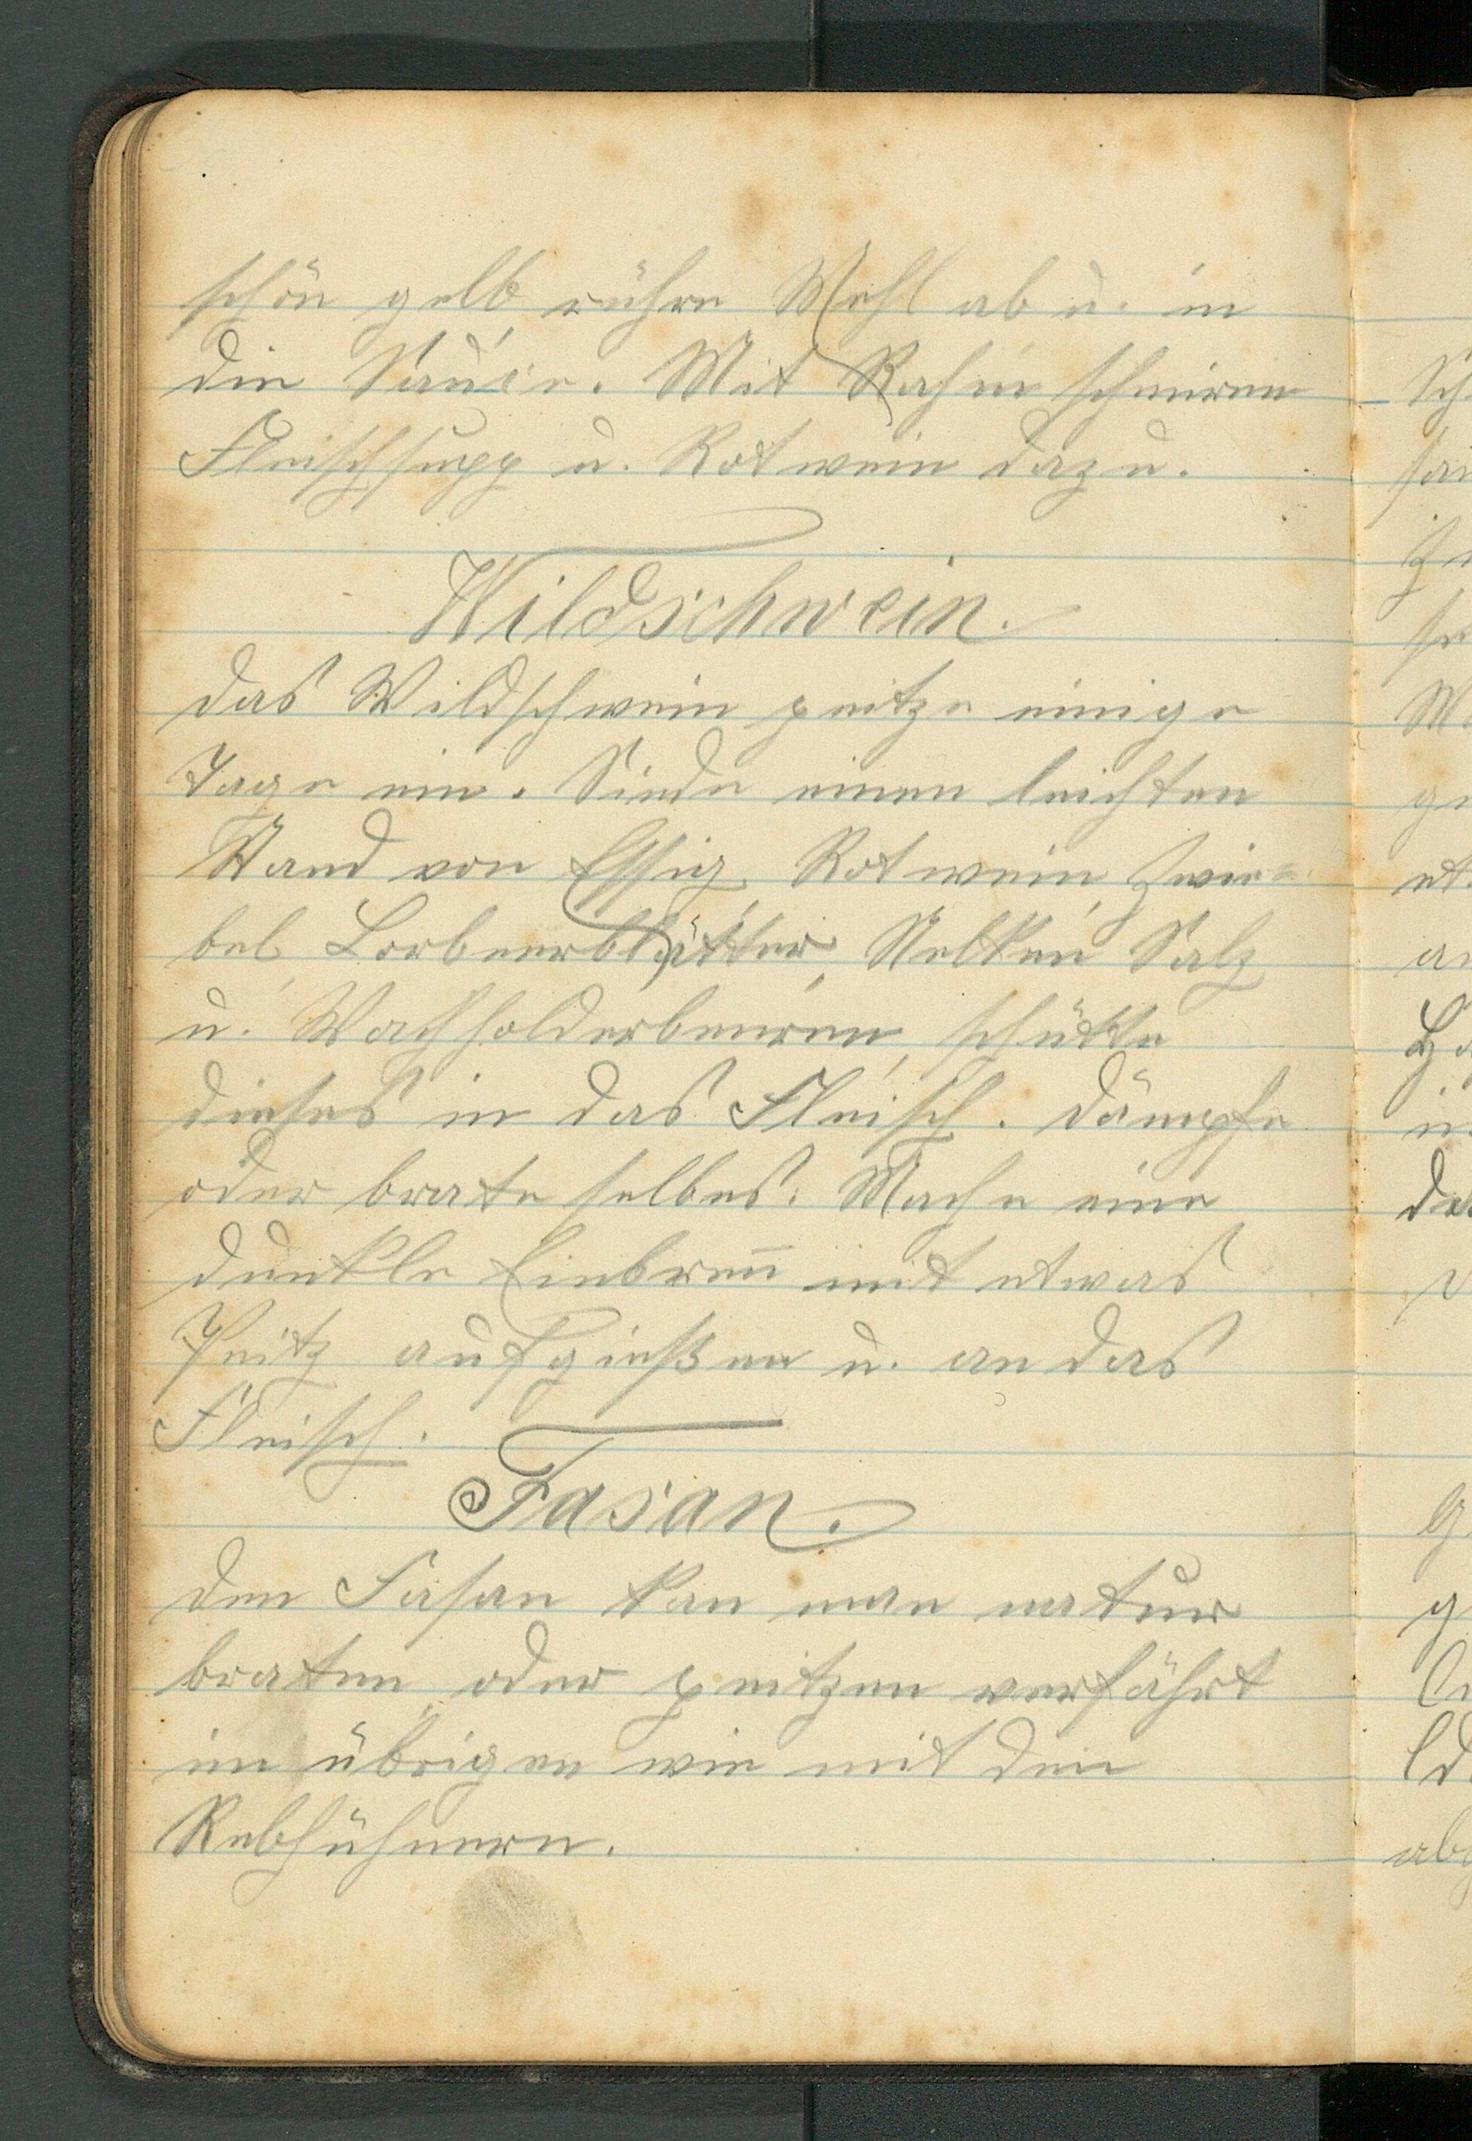 schön gelb rühre Mehl ab u. in
die Sauce. Mit Rahm schmiren
Fleischsupp u. Rotwein dazu.
Wildschwein.
Das Wildschwein peitze einige
Tage ein. Siede einen leichten
Wand von Essig, Rotwein, Zwie=
bel, Lorbeerblätter, Nelken, Salz
u. Wachholderbeeren, schütte
dieses in das Fleisch. Dämpfe
oder brate selbes. Mache eine
dunkle Einbreñ mit etwas
Peitz aufgießen u. an das
Fleisch.
Fasan.
Den Fasan kan man natur
braten oder peitzen verfährt
im übrigen wie mit den
Rebhühnern.